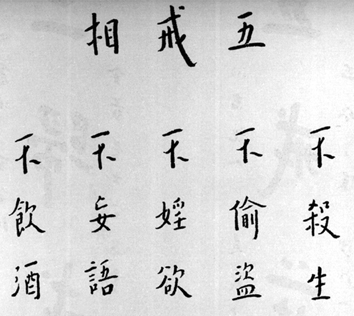 五戒相
不殺生
不偷盜
不婬欲
不妄語
不飲酒